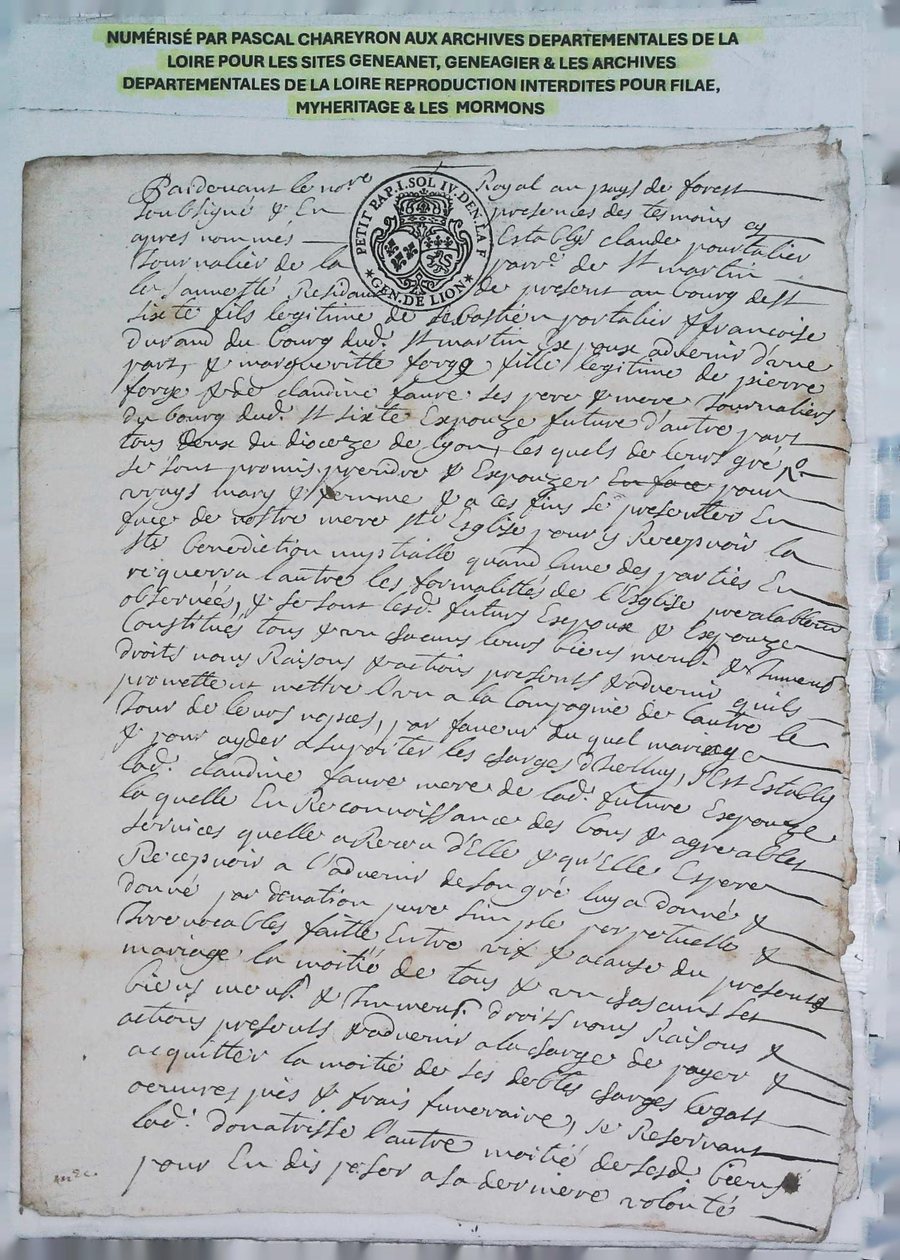 NUMÉRISÉ PAR PASCAL CHAREYRON AUX ARCHIVES DEPARTEMENTALES DE LA
LOIRE POUR LES SITES GENEANET, GENEAGIER & LES ARCHIVES
DEPARTEMENTALES DE LA LOIRE REPRODUCTION INTERDITES POUR FILAE,
MYHERITAGE & LES MORMONS
PETIT PAP. I. SOL IV. DEN. LA F
GEN. DE LION
Pardevant le no.re Royal au pays de forest
soubsigné & En presences des tesmoins cy
apres nommés Establys claude pourtalier
Journalier de la parr.e de St martin
la sannesté Residant de present au bourg de St
sixte fils legitime de sebastien portalier & francoise
durand du bourg dud. St martin Expoux advenir d'une
part, & margueritte forge fille legitime de pierre
forge & de claudine faure ses pere & mere Journaliers
du bourg dud. St sixte Expouze future d'autre part
tous deux du dioceze de Lyon, les quels de leurs gré
se sont promis prendre & Expouzer en face pour
vrays mary & femme & a ces fins se presenter En
face de nostre mere Ste Esglise pour y Recepvoir la
Ste benediction nuptialle quand l'une des parties En
requerra l'autre les formalittés de l'Esglise prealablem
observées, & se sont lesd. futurs Expoux & Expouze
Constitués tous & un chacuns leurs biens meub. & Immeub
droits noms Raisons & actions presents & advenir quils
promettent mettre l'un a la Compagnie de l'autre le
Jour de leurs nopces, par faveur du quel mariage
& pour ayder a suporter les charges d'Icelluy, s'Est Estably
lad. claudine faure mere de lad. future Expouze
la quelle En Reconnoissance des bons & agreables
services quelle a Receu d'Elle & qu'Elle Espere
Recepvoir a l'advenir de son gré luy a donné &
donne par donation pure simple perpetuelle &
Irrevocables faitte Entre vifs & a cause du present
mariage la moitié de tous & un chascuns ses
biens meub. & Immeub. droits noms Raisons &
actions presents & advenir a la charge de payer &
acquitter la moitié de ses debtes charges legatz
oeuvres pies & frais funeraire, se Reservant
lad. donatrisse l'autre moitié de sesd. biens
pour En disposer a sa derniere volonté